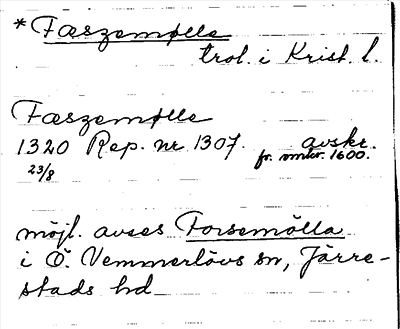 *Fæszemølle
trol. i Krist. l.
Fæszemølle
1320 Rep. nr 1307. avskr.
23/8 fr. mitten 1600.
möjl. avses Forsemölla
i Ö. Vemmerlövs sn, Järre-
stads hd